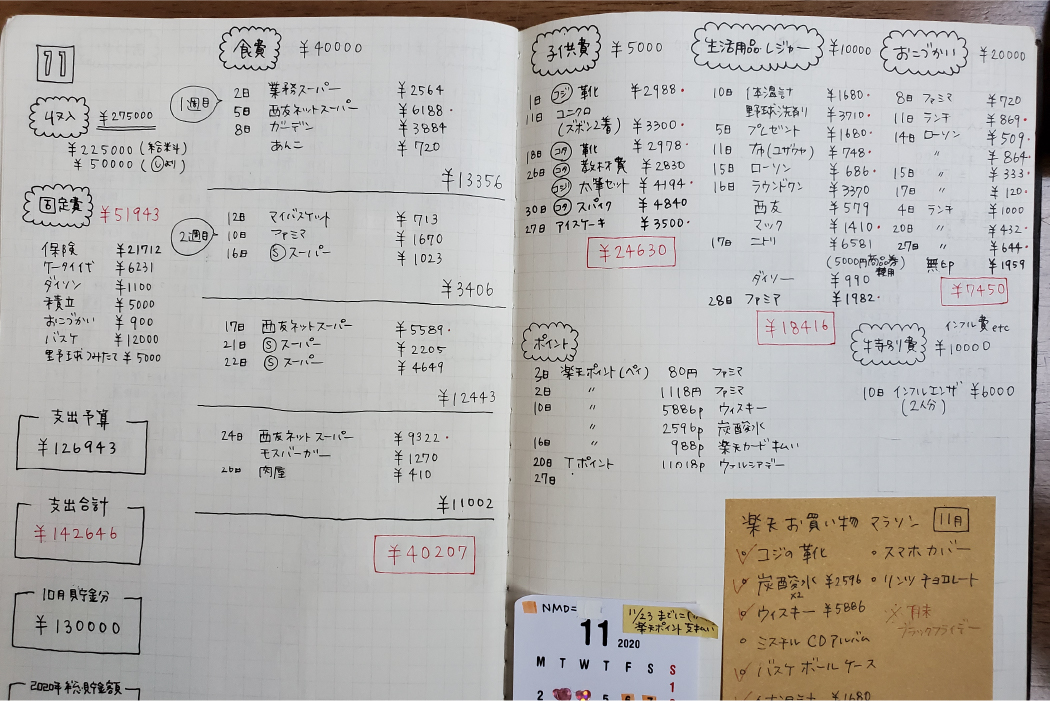 11
収入 ¥275000
¥225000 (給料)
¥50000 (しより)
固定費 ¥51943
保険 ¥21712
ケータイ代 ¥6231
ダイソン ¥1100
積立 ¥5000
おこづかい ¥900
バスケ ¥12000
野球つみたて ¥5000
支出予算
¥126943
支出合計
¥142646
10月貯金分
¥130000
2020年総貯金額
食費 ¥40000
1週目
2日 業務スーパー ¥2564
5日 西友ネットスーパー ¥6188.
8日 ガーデン ¥3884
あんこ ¥720
¥13356
2週目
12日 マイバスケット ¥713
10日 ファミマ ¥1670
16日 Ⓢスーパー ¥1023
¥3406
17日 西友ネットスーパー ¥5589.
21日 Ⓢスーパー ¥2205
22日 Ⓢスーパー ¥4649
¥12443
24日 西友ネットスーパー ¥9322.
モスバーガー ¥1270
26日 肉屋 ¥410
¥11002
¥40207
子供費 ¥5000
1日 コジ 靴 ¥2988.
11日 ユニクロ
(ズボン2着) ¥3300.
18日 コタ 靴 ¥2978.
26日 コタ 教材費 ¥2830
コジ 太筆セット ¥4194.
30日 コタ スパイク ¥4840
27日 アイスケーキ ¥3500.
¥24630
生活用品 レジャー ¥10000
10日 体温計 ¥1680.
野球洗剤 ¥3710.
5日 プレゼント ¥1680.
11日 ¥748.
15日 ローソン ¥686.
16日 ラウンドワン ¥3370
西友 ¥579
マック ¥1410.
17日 ニトリ ¥6581
(5000円商品券使用)
ダイソー ¥990
28日 ファミマ ¥1982.
¥18416
おこづかい ¥20000
8日 ファミマ ¥720
11日 ランチ ¥869.
14日 ローソン ¥509.
〃 ¥864.
15日 〃 ¥333.
17日 〃 ¥120.
4日 ランチ ¥1000
20日 〃 ¥432.
27日 〃 ¥644.
無印 ¥1959
¥7450
ポイント
3日 楽天ポイント(ペイ) 80円 ファミマ
2日 〃 1118円 ファミマ
10日 〃 5886p ウィスキー
〃 2596p 炭酸水
16日 〃 988p 楽天カード払い
20日 Tポイント 11018p ウァルシアデー
27日
特別費 インフル費etc
¥10000
10日 インフルエンザ ¥6000
(2人分)
楽天お買い物マラソン 11月
コジの靴
スマホカバー
炭酸水 ¥2596
x2
リンツ チョコレート
ウィスキー ¥5886
※月末
ブラックフライデー
ミスチル CDアルバム
バスケボールケース
体温計 ¥1680
NMD=
11/23までに
楽天ポイント支払い
11
2020
M T W T F S S
1
2